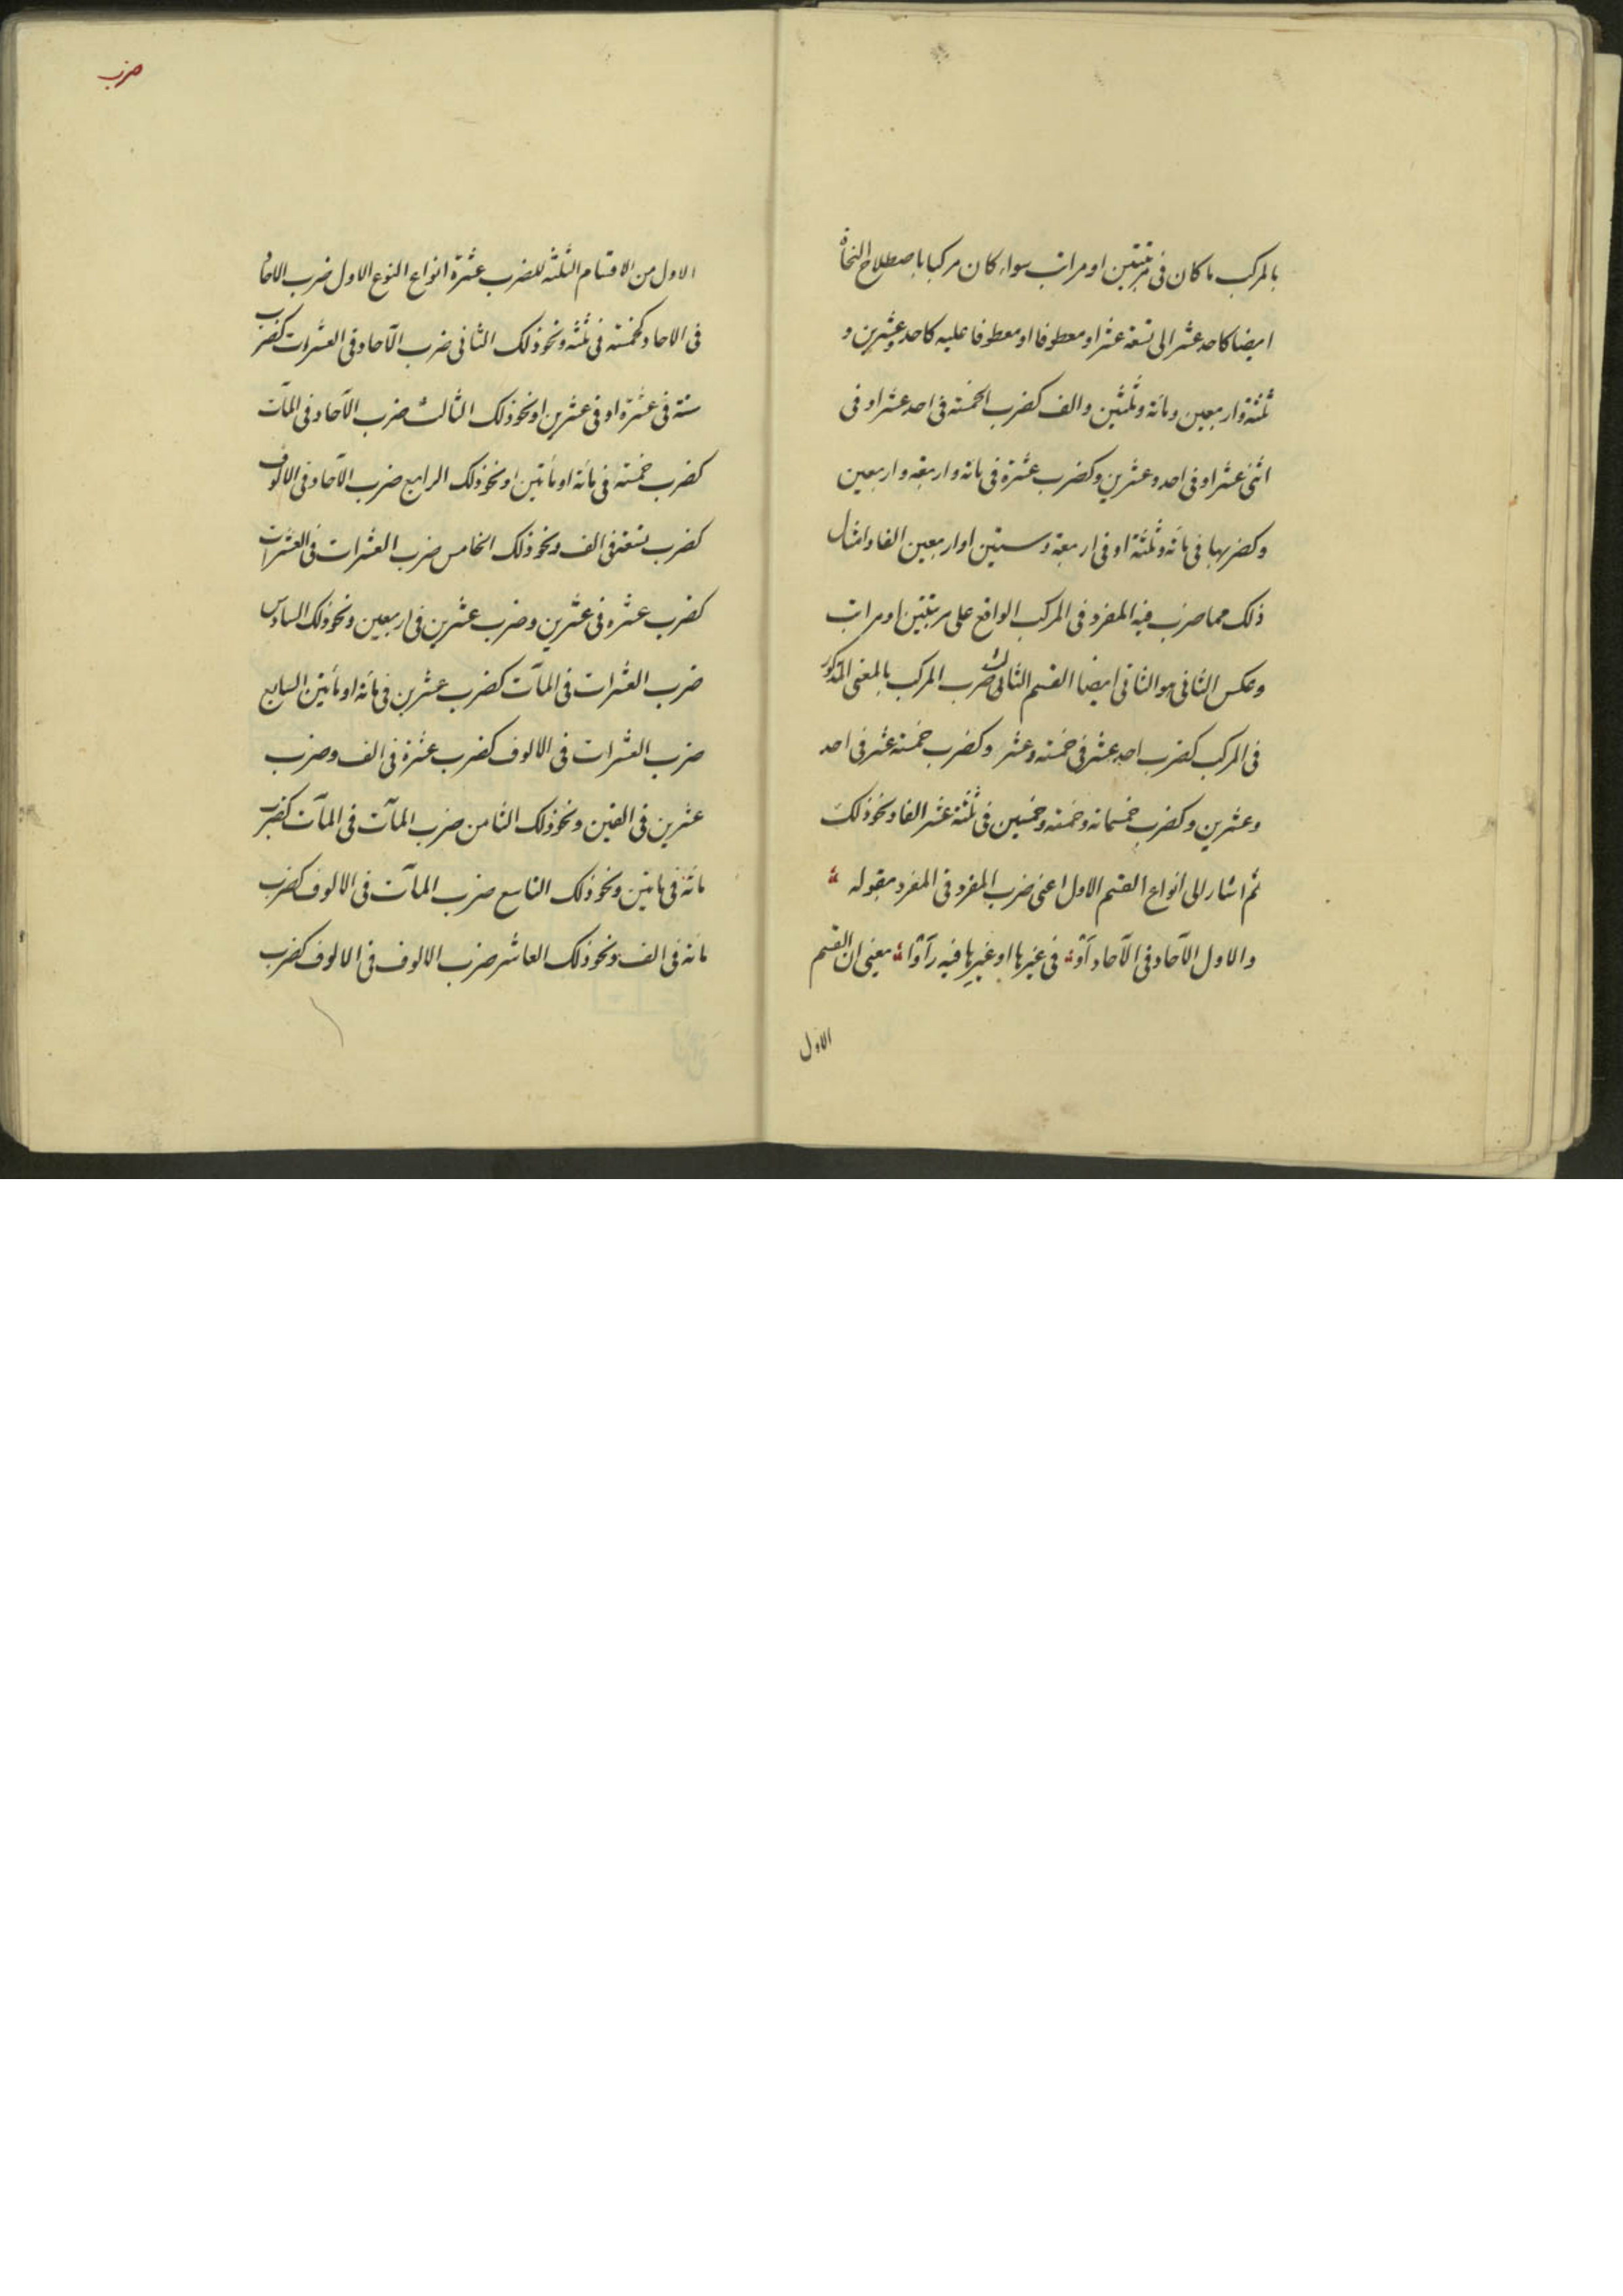 بالمركب ما كان فى مرتبتين او مراتب سواء كان مركبا باصطلاح النحاة
ايضا كاحد عشر الى تسعة عشر او معطوفا او معطوفا عليه كاحد وعشرين و
ثلثة واربعين ومائة وثلثين والف كضرب الخمسة فى احد عشر او فى
اثنى عشر او فى احد وعشرين وكضرب عشرة فى مائة واربعة واربعين
وكضربها فى مائة وثلثة او فى اربعة وستين او اربعين الفا وامثال
ذلك مما ضرب فيه المفرد فى المركب الواقع على مرتبتين او مراتب
وعكس الثانى هو الثانى ايضا القسم الثالث ضرب المركب بالمعنى المذكور
فى المركب كضرب احد عشر فى خمسة وعشر وكضرب خمسة عشر فى احد
وعشرين وكضرب خمسمائة وخمسة وخمسين فى ثلثة عشر الفا ونحو ذلك
ثم اشار الى انواع القسم الاول اعنى ضرب المفرد فى المفرد بقوله
والاول الآحاد فى الآحاد او فى غيرها او غيرها فيه رأوا يعنى ان القسم
الاول
ضرب
الاول من الاقسام الثلثة للضرب عشرة انواع النوع الاول ضرب الاحاد
فى الاحاد كخمسة فى ثلثة ونحو ذلك الثانى ضرب الآحاد فى العشرات كضرب
ستة فى عشرة او فى عشرين او نحو ذلك الثالث ضرب الآحاد فى المآت
كضرب خمسة فى مائة او مأتين او نحو ذلك الرابع ضرب الآحاد فى الالوف
كضرب تسعة فى الف ونحو ذلك الخامس ضرب العشرات فى العشرات
كضرب عشره فى عشرين وضرب عشرين فى اربعين ونحو ذلك السادس
ضرب العشرات فى المآت كضرب عشرين فى مائة او مأتين السابع
ضرب العشرات فى الالوف كضرب عشرة فى الف وضرب
عشرين فى الفين ونحو ذلك الثامن ضرب المآت فى المآت كضرب
مائة فى مأتين ونحو ذلك التاسع ضرب المآت فى الالوف كضرب
مائة فى الف ونحو ذلك العاشر ضرب الالوف فى الالوف كضرب